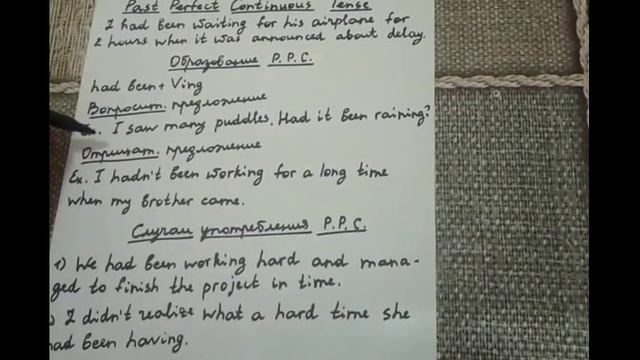 Past Perfect Continuous Tense
I had been waiting for his airplane for
2 hours when it was announced about delay.
Образование P.P.C.
had been + Ving
Вопросит. предложение
Ex. I saw many puddles. Had it been raining?
Отрицат. предложение
Ex. I hadn't been working for a long time
when my brother came.
Случаи употребления P.P.C.
1) We had been working hard and mana-
ged to finish the project in time.
) I didn't realize what a hard time she
had been having.